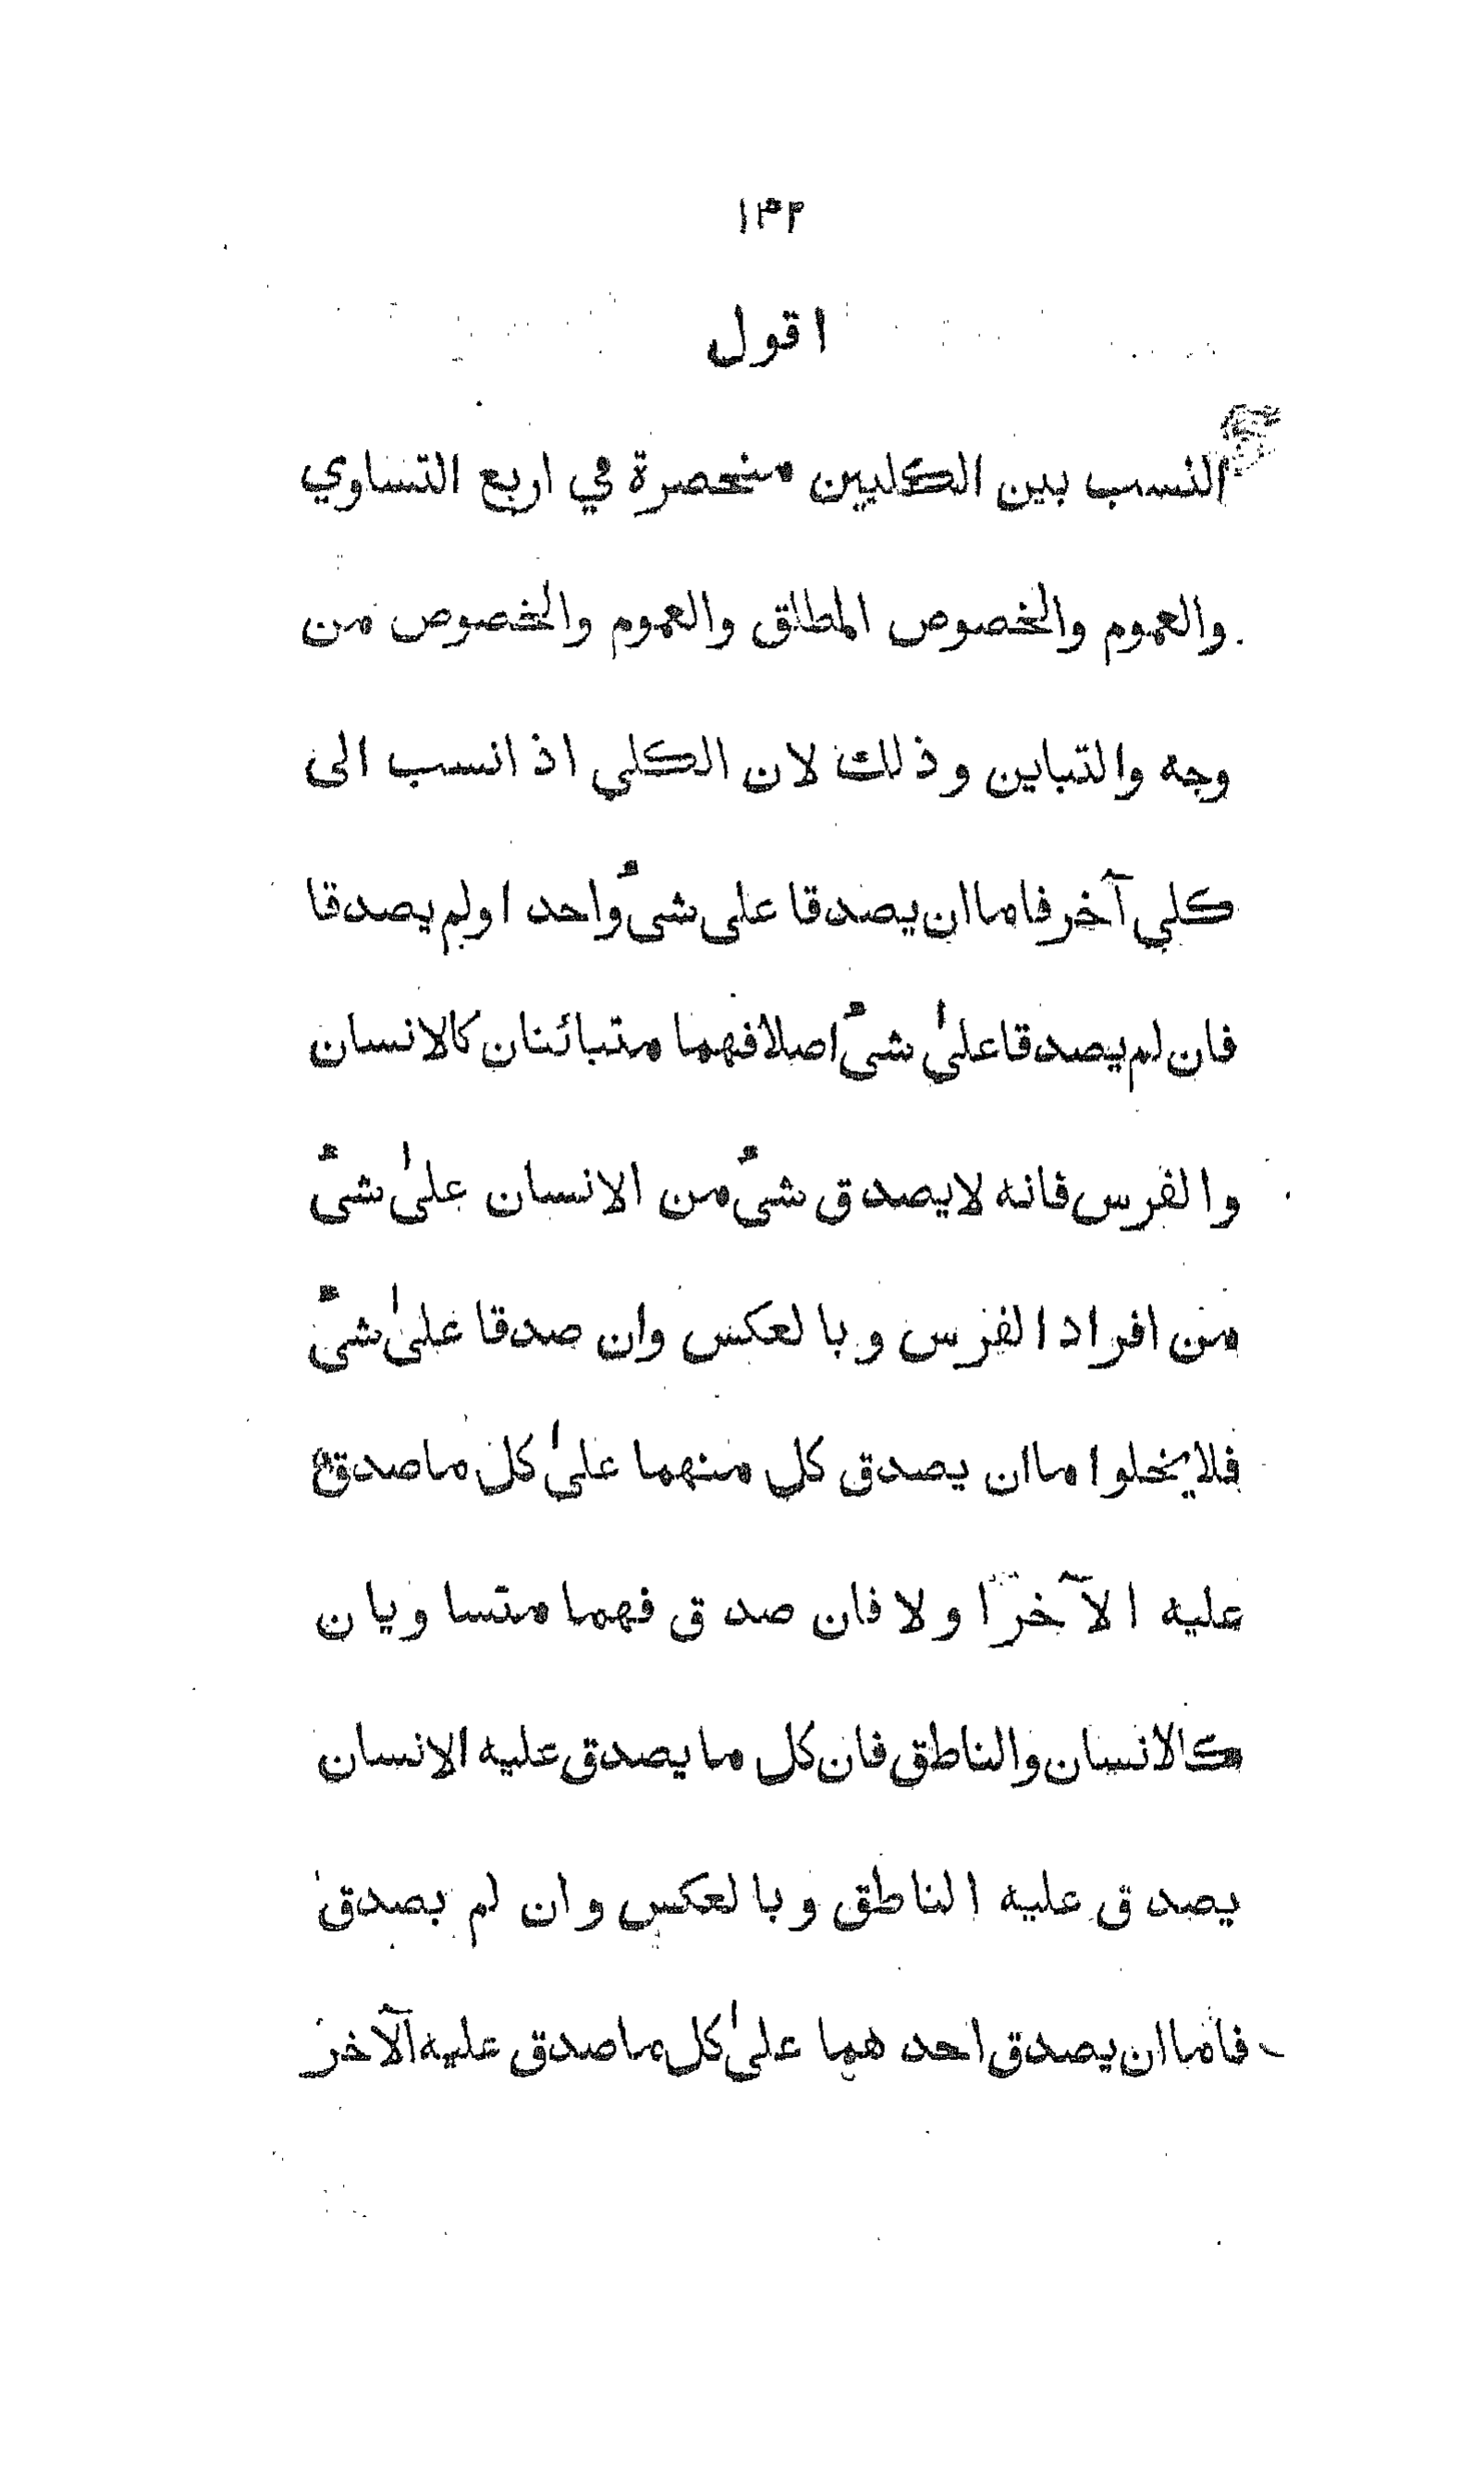 ١٣٢
اقول
النسب بين الكليين منحصرة في اربع التساوي
والعموم والخصوص المطلق والعموم والخصوص من
وجه والتباين وذلك لان الكلي اذ انسب الى
كلي آخر فاما ان يصدقا على شىٔ واحد او لم يصدقا
فان لم يصدقا علىٰ شىٔ اصلا فهما متبائنان كالانسان
والفرس فانه لا يصدق شىٔ من الانسان علىٰ شىٔ
من افراد الفرس وبالعكس وان صدقا علىٰ شىٔ
فلا يخلوا ما ان يصدق كل منهما علىٰ كل ما صدق
عليه الآخر او لا فان صدق فهما متساويان
كالانسان والناطق فان كل ما يصدق عليه الانسان
يصدق عليه الناطق وبالعكس وان لم يصدق
فاما ان يصدق احدهما علىٰ كل ما صدق عليه الآخر